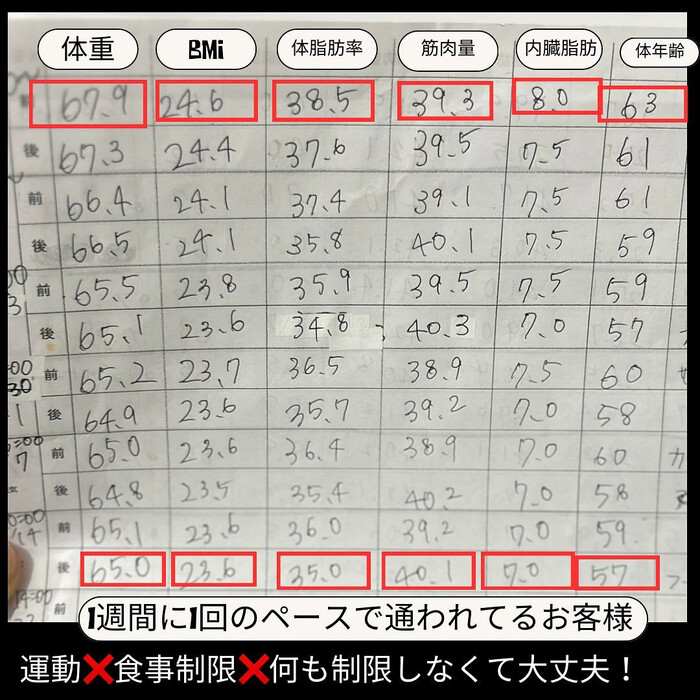 体重 BMi 体脂肪率 筋肉量 内臓脂肪 体年齢
67.9 24.6 38.5 39.3 8.0 63
後 67.3 24.4 37.6 39.5 7.5 61
前 66.4 24.1 37.4 39.1 7.5 61
後 66.5 24.1 35.8 40.1 7.5 59
前 65.5 23.8 35.9 39.5 7.5 59
後 65.1 23.6 34.8 40.3 7.0 57
前 65.2 23.7 36.5 38.9 7.5 60
後 64.9 23.6 35.7 39.2 7.0 58
前 65.0 23.6 36.4 38.9 7.0 60
後 64.8 23.5 35.4 40.2 7.0 58
前 65.1 23.6 36.0 39.2 7.0 59
後 65.0 23.6 35.0 40.1 7.0 57
14:00
前
1週間に1回のペースで通われてるお客様
運動❌食事制限❌何も制限しなくて大丈夫！